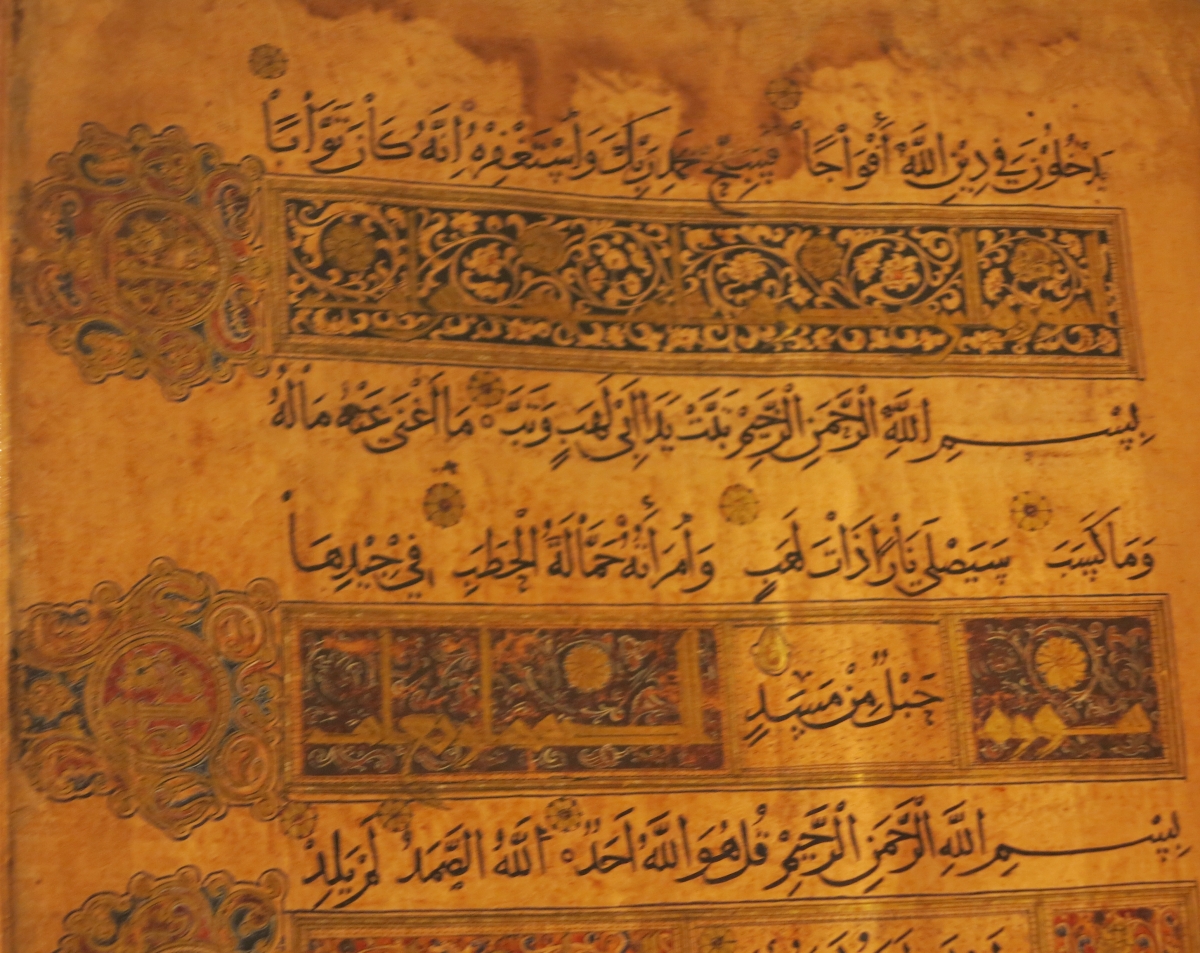 يَدْخُلُونَ فِي دِينِ اللَّهِ أَفْوَاجًا فَسَبِّحْ بِحَمْدِ رَبِّكَ وَاسْتَغْفِرْهُ إِنَّهُ كَانَ تَوَّابًا
بِسْمِ اللَّهِ الرَّحْمَنِ الرَّحِيمِ تَبَّتْ يَدَا أَبِي لَهَبٍ وَتَبَّ مَا أَغْنَى عَنْهُ مَالُهُ
وَمَا كَسَبَ سَيَصْلَى نَارًا ذَاتَ لَهَبٍ وَامْرَأَتُهُ حَمَّالَةَ الْحَطَبِ فِي جِيدِهَا
حَبْلٌ مِنْ مَسَدٍ
بِسْمِ اللَّهِ الرَّحْمَنِ الرَّحِيمِ قُلْ هُوَ اللَّهُ أَحَدٌ اللَّهُ الصَّمَدُ لَمْ يَلِدْ